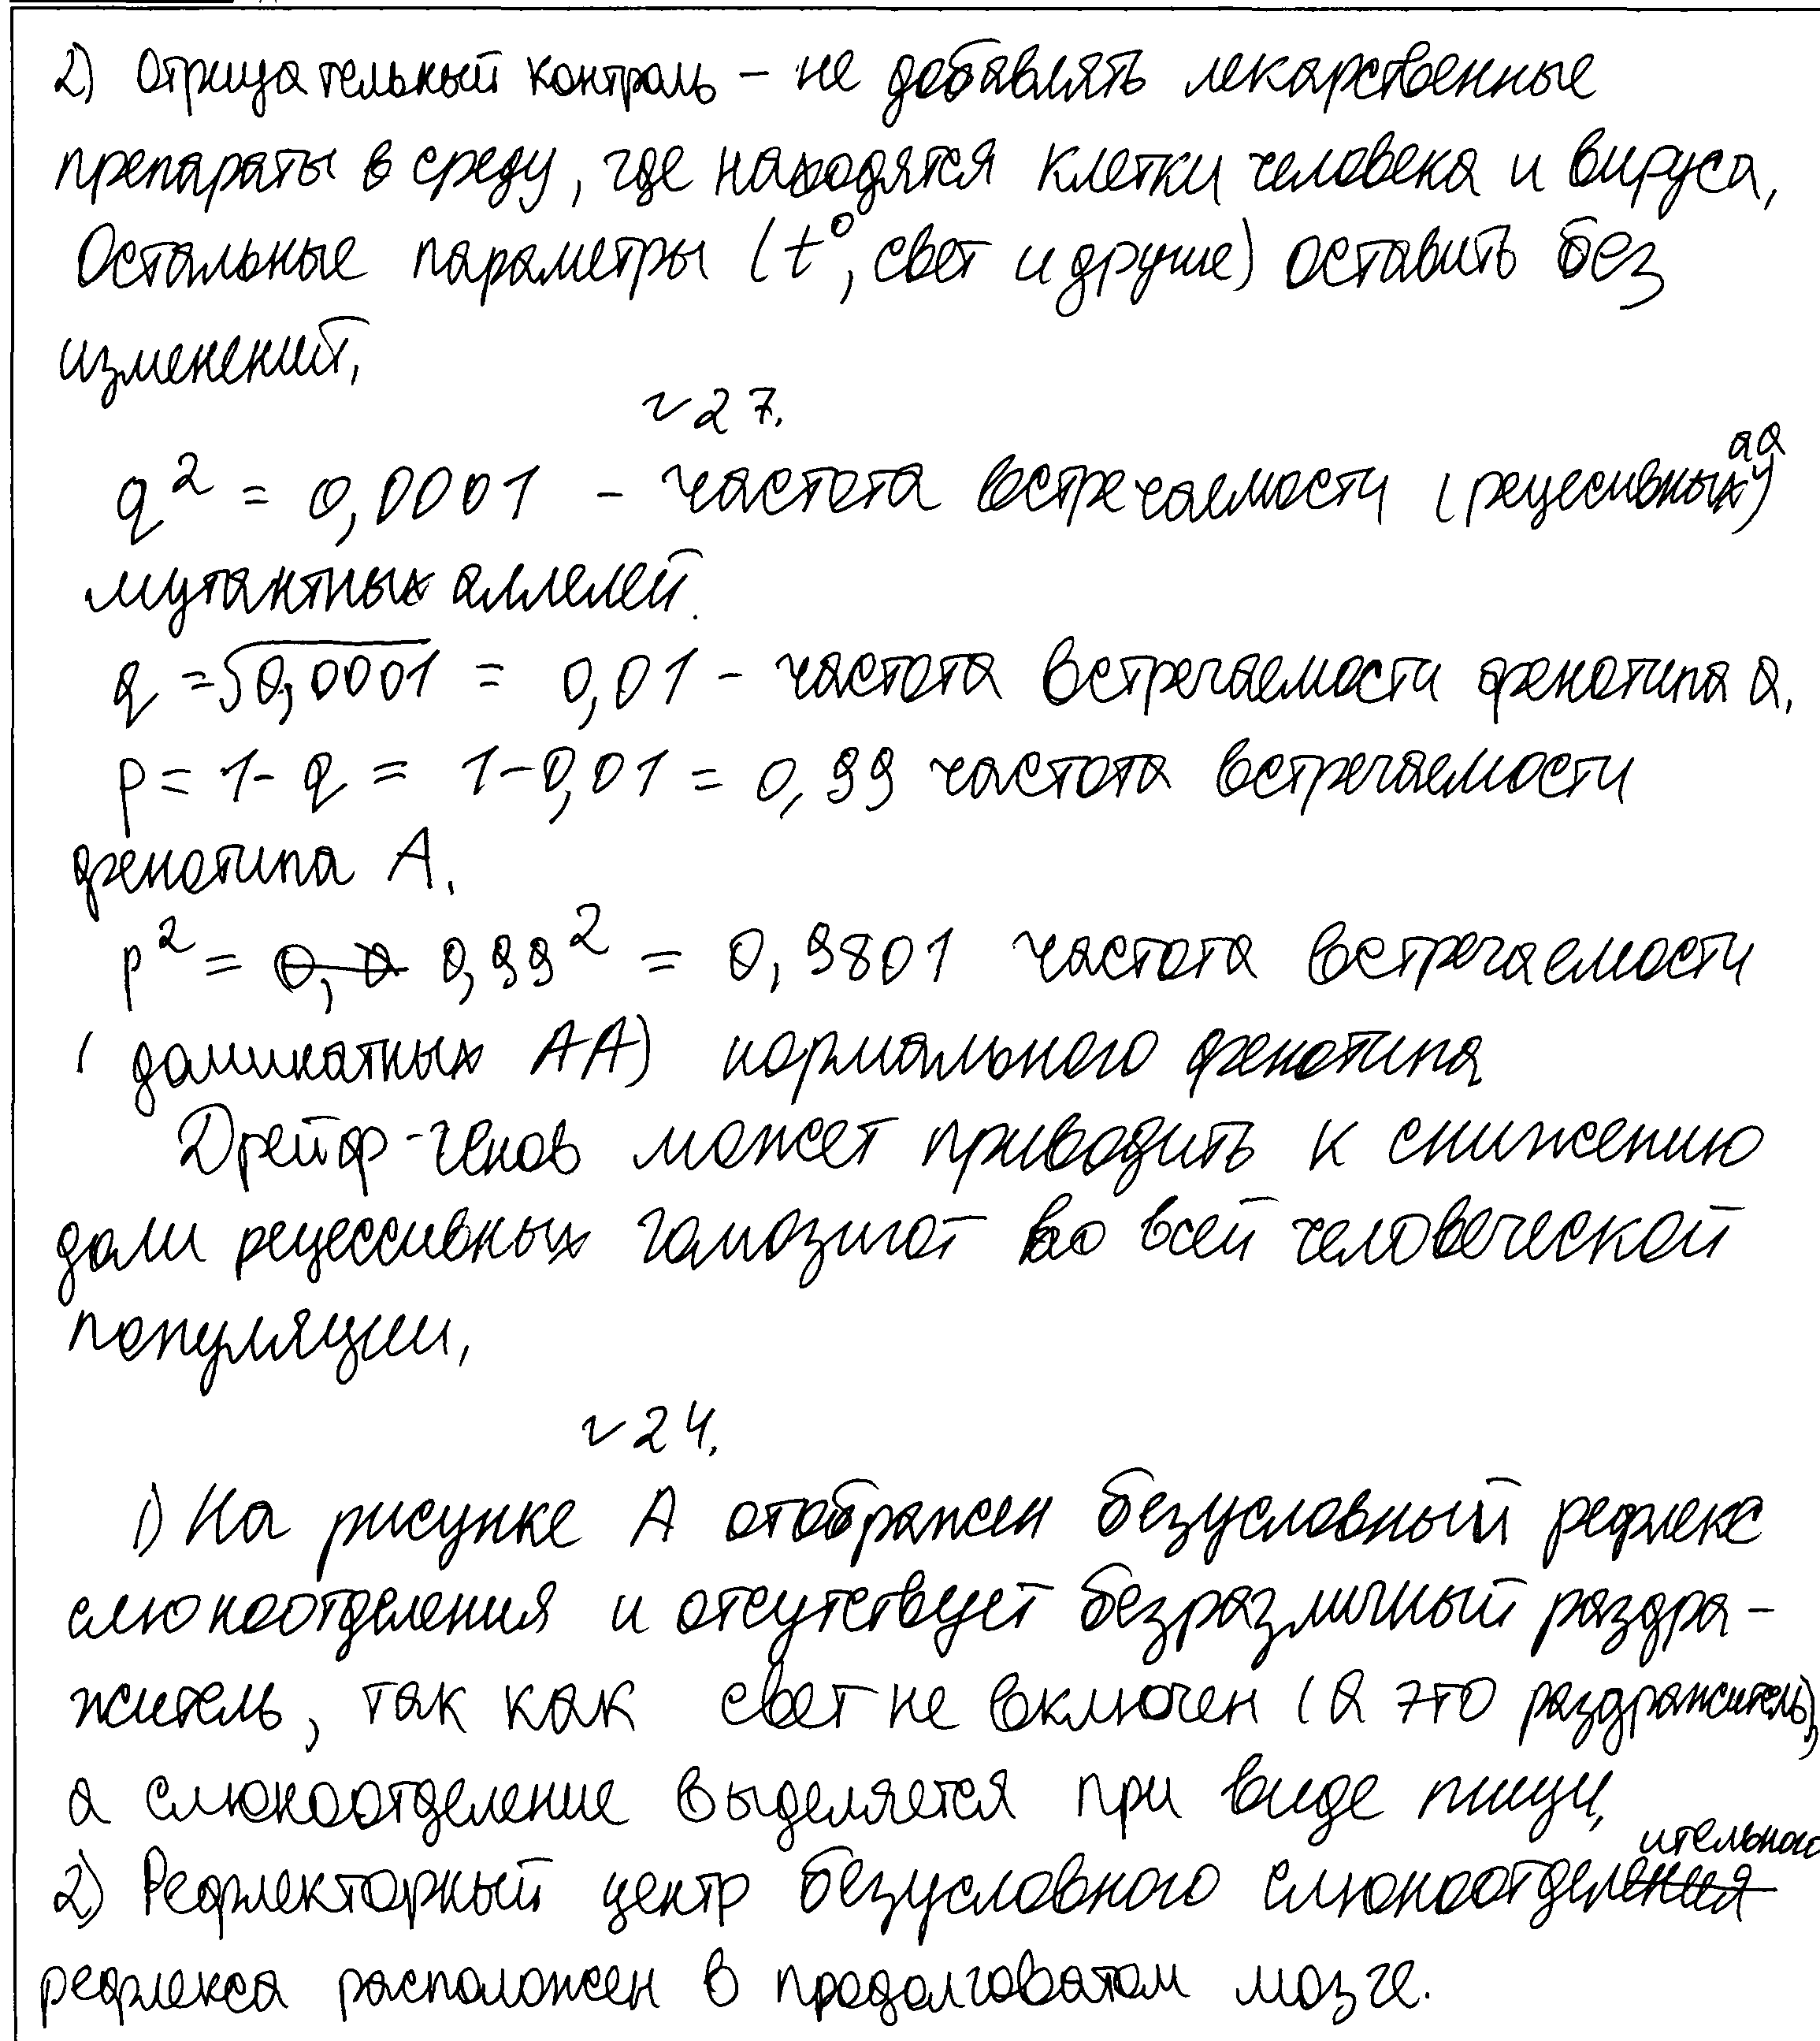 2) Отрицательный контроль – не добавлять лекарственные
препараты в среду, где находятся клетки человека и вируса,
Остальные параметры (t°, свет и другие) оставить без
изменений,
№27.
q² = 0,0001 – частота встречаемости (рецесивных aa)
мутантных аллелей.
q = √0,0001 = 0,01 – частота встречаемости фенотипа a.
p = 1 - q = 1 - 0,01 = 0,99 частота встречаемости
фенотипа A.
p² = 0,99² = 0,9801 частота встречаемости
(доминатных AA) нормального фенотипа
Дрейф-генов может приводить к снижению
доли рецессивных гомозигот во всей человеческой
популяции,
№24.
1) На рисунке А отображен безусловный рефлекс
слюноотделения и отсутствует безразличный раздра-
житель, так как свет не включен (а это раздражитель),
а слюноотделение выделяется при виде пищи,
2) Рефлекторный центр безусловного слюноотделительного
рефлекса расположен в продолговатом мозге.